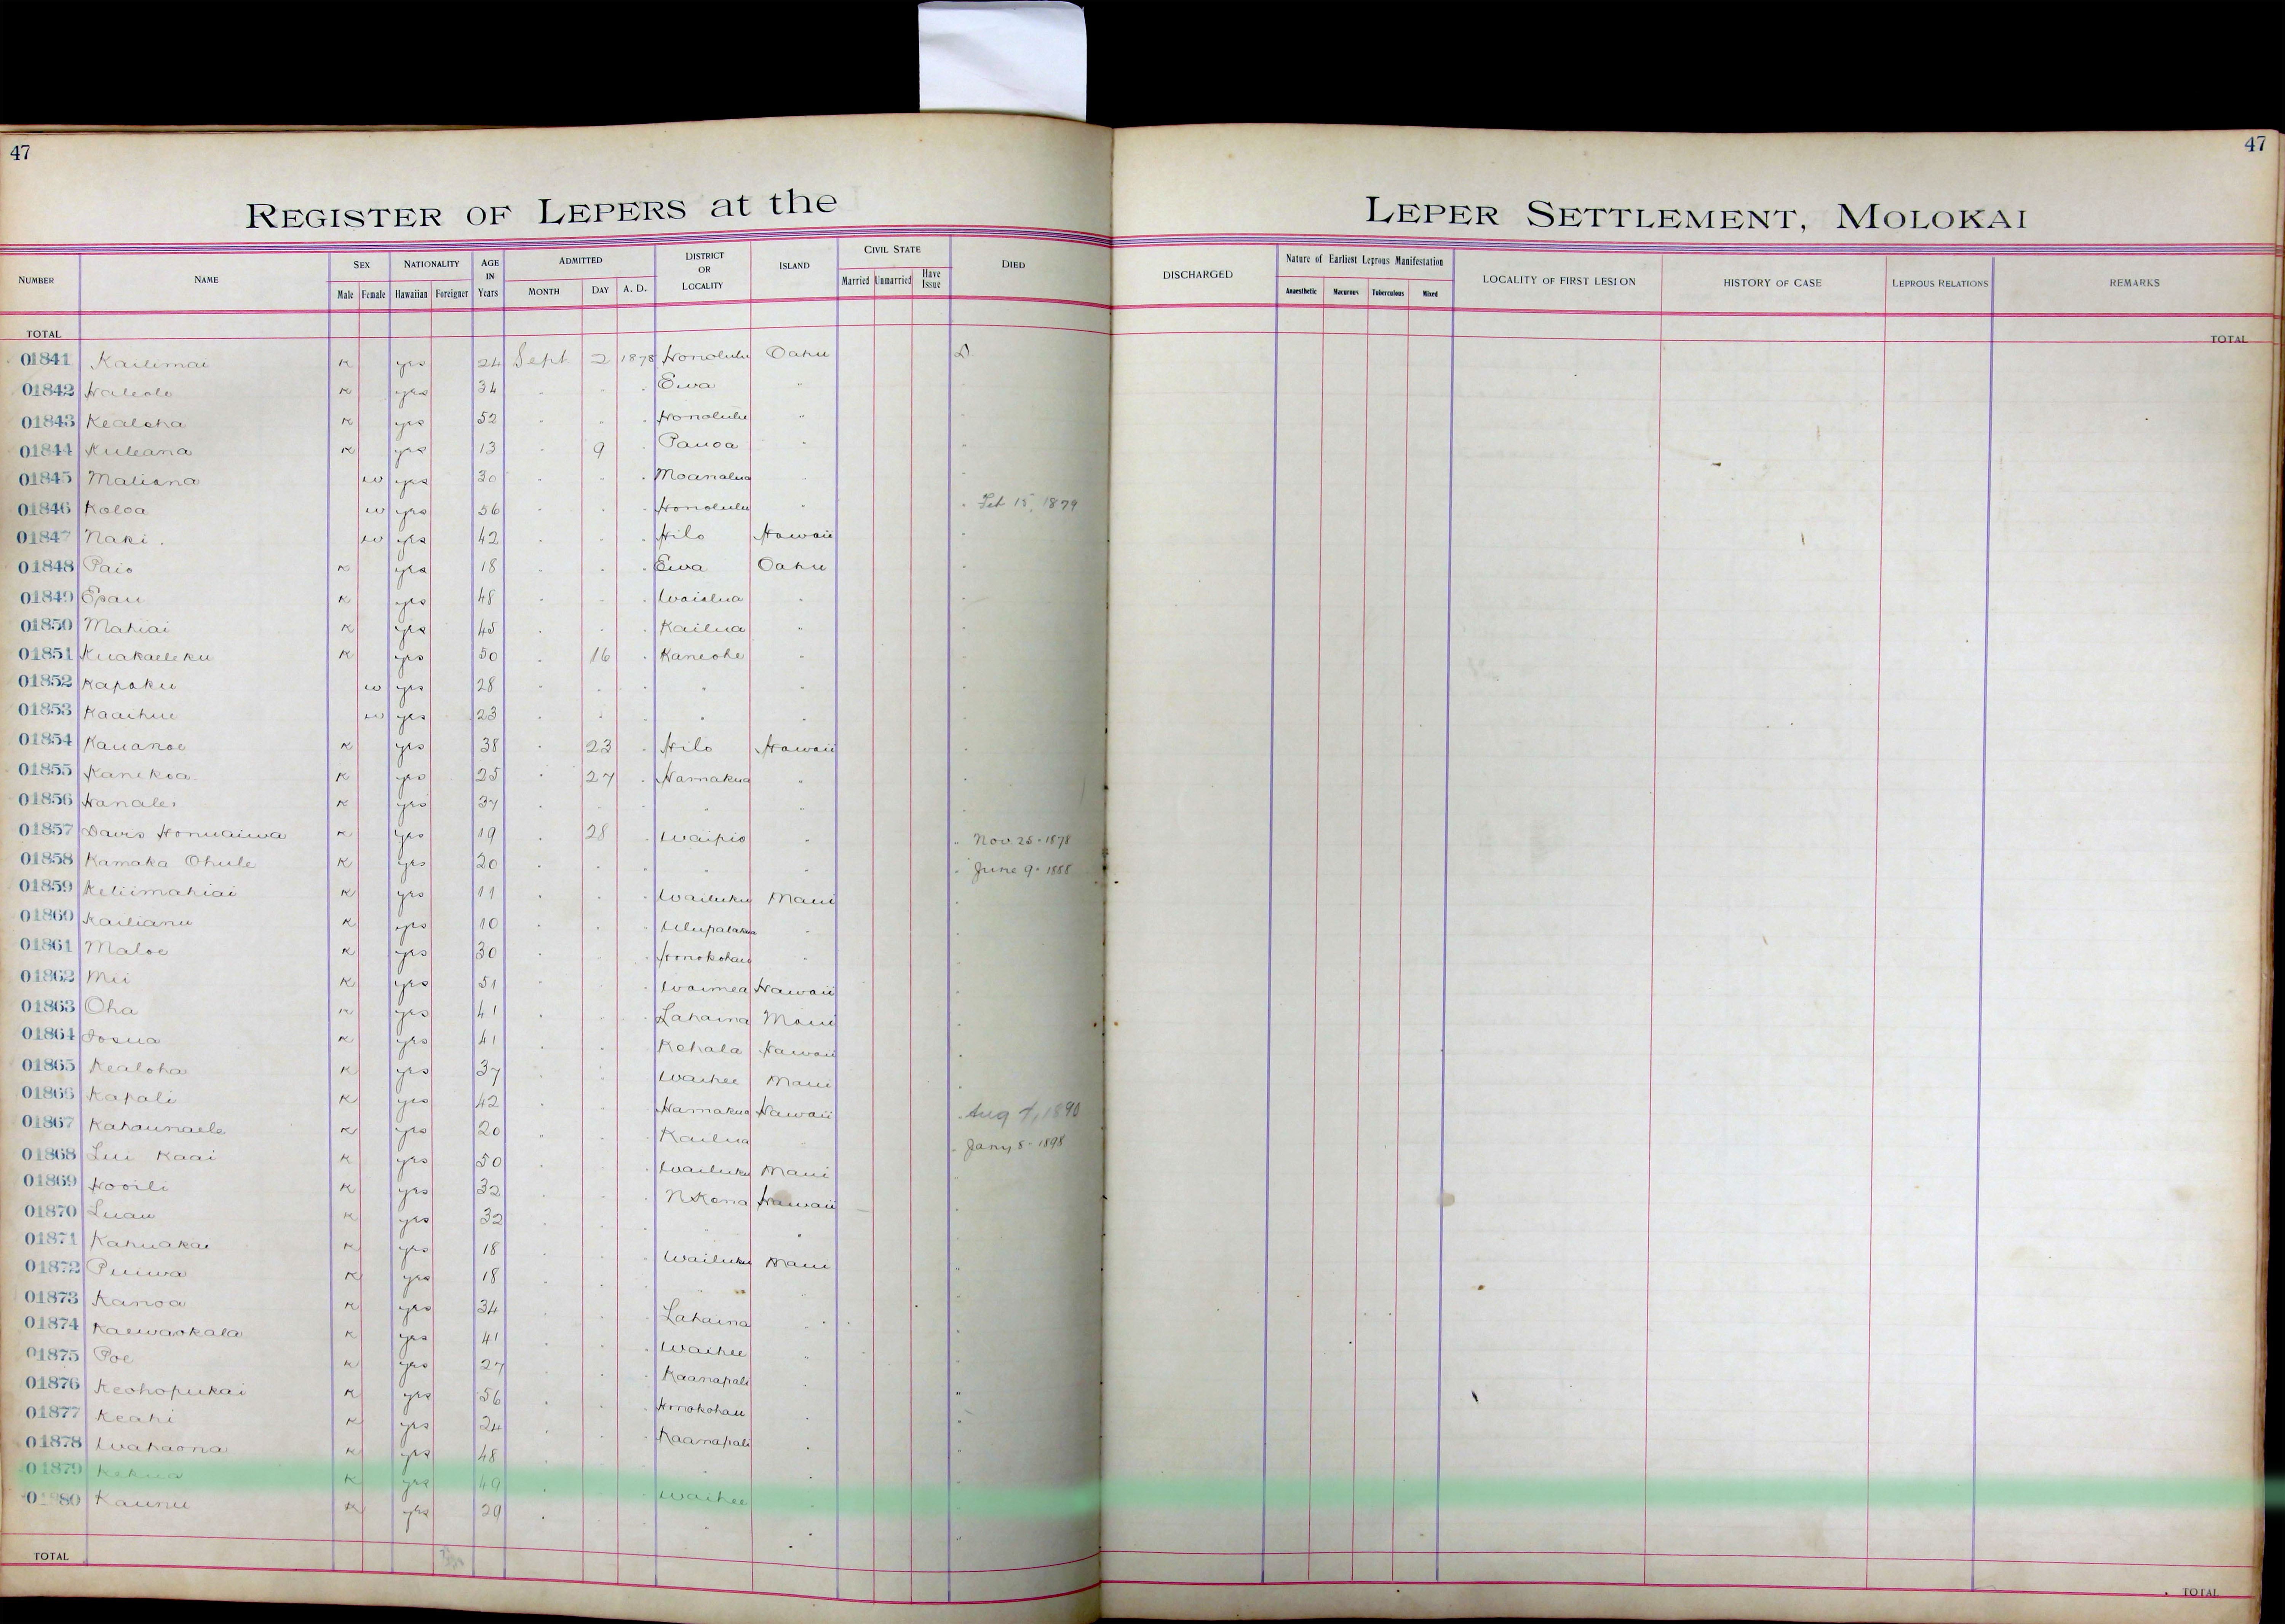 47
47
REGISTER OF LEPERS at the
LEPER SETTLEMENT, MOLOKAI
NUMBER NAME SEX NATIONALITY AGE IN Years ADMITTED DISTRICT OR LOCALITY ISLAND CIVIL STATE DIED DISCHARGED Nature of Earliest Leprous Manifestation LOCALITY OF FIRST LESION HISTORY OF CASE LEPROUS RELATIONS REMARKS
Male Female Hawaiian Foreigner MONTH DAY A. D. Married Unmarried Have Issue Anaesthetic Macurous Tuberculous Mixed
TOTAL TOTAL
01841 Kailimai K yes 24 Sept 2 1878 Honolulu Oahu D
01842 Haleolo K yes 34 " " " Ewa "
01843 Kealoha K yes 52 " " " Honolulu "
01844 Kuleana K yes 13 " 9 " Pauoa "
01845 Maliana w yes 30 " " " Moanalua "
01846 Koloa w yes 56 " " " Honolulu " " Feb 15, 1879
01847 Naki w yes 42 " " " Hilo Hawaii "
01848 Paio K yes 18 " " " Ewa Oahu "
01849 Epau K yes 48 " " " Waialua " "
01850 Mahiai K yes 45 " " " Kailua " "
01851 Kuakaeleku K yes 50 " 16 " Kaneohe " "
01852 Kapoku w yes 28 " " " " " "
01853 Kaaihue w yes 23 " " " " " "
01854 Kauanoe K yes 38 " 23 " Hilo Hawaii "
01855 Kanekoa K yes 25 " 27 " Hamakua " "
01856 Hanalei K yes 37 " " " " " "
01857 Davis Honuaiwa K yes 19 " 28 " Waipio " " Nov 25 - 1878
01858 Kamaka Ohule K yes 20 " " " " " " June 9 - 1888
01859 Keliimahiai K yes 11 " " " Wailuku Maui "
01860 Kailianu K yes 10 " " " Ulupalakua " "
01861 Maloe K yes 30 " " " Honokohau " "
01862 Mii K yes 51 " " " Waimea Hawaii "
01863 Oha K yes 41 " " " Lahaina Maui "
01864 Iosua K yes 41 " " " Kohala Hawaii "
01865 Kealoha K yes 37 " " " Waihee Maui "
01866 Kapali K yes 42 " " " Hamakua Hawaii " Aug 7, 1890
01867 Kahaunaele K yes 20 " " " Kailua " " Jany 8 - 1898
01868 Lui Kaai K yes 50 " " " Wailuku Maui "
01869 Hooili K yes 32 " " " N Kona Hawaii "
01870 Luau K yes 32 " " " " " "
01871 Kahuakai K yes 18 " " " Wailuku Maui "
01872 Puiwa K yes 18 " " " " " "
01873 Kanoa K yes 34 " " " Lahaina " "
01874 Kaewaokala K yes 41 " " " Waihee " "
01875 Poe K yes 27 " " " Kaanapali " "
01876 Keohopukai K yes 56 " " " Honokohau " "
01877 Keahi K yes 24 " " " Kaanapali " "
01878 Wahaona K yes 48 " " " " " "
01879 Kekua K yes 49 " " " Waihee " "
01880 Kaunu K yes 29 " " " " " "
TOTAL TOTAL